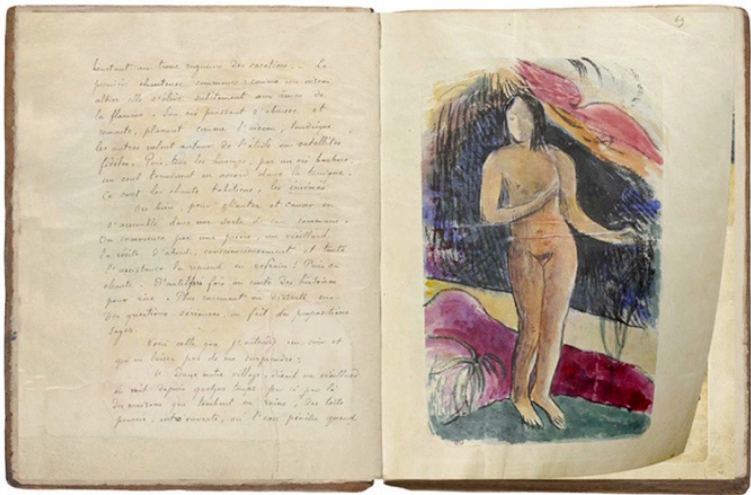 hésitant un trône vigueur des carotières. — La
première chanteuse commence : comme un oiseau
altier elle s'élève subitement aux cimes de
la flamme. Son cri puissant s'abaisse et
remonte, planant comme l'oiseau, tandis que
les autres volent autour de l'étoile en satellites
fidèles. Puis, tous les hommes, par un cri barbare,
un seul, terminent en accord dans la tonique.
Ce sont les chants tahitiens, les iménés
Ou bien, pour chanter et causer on
s'assemble dans une sorte de case commune.
On commence par une prière, un vieillard
la récite d'abord, consciencieusement et toute
l'assistance la reprend en refrain. Puis on
chante. D'autres fois on conte des histoires
pour rire. Plus rarement on disserte sur
des questions sérieuses, on fait des propositions
sages.
Voici celle que j'entendis un soir et
qui ne laissa pas de me surprendre :
« Dans notre village, disait un vieillard
on voit depuis quelque temps par ci par là
des maisons qui tombent en ruine, des toits
pourris, entr'ouverts, où l'eau pénètre quand
69